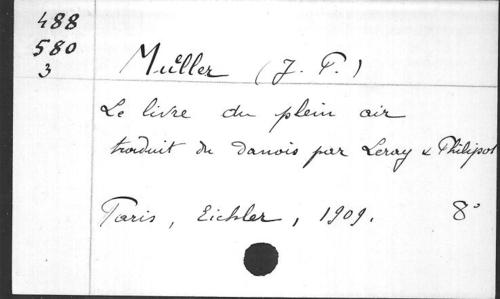 488
580
3
Müller (J. P.)
Le livre du plein air
traduit du danois par Leray & Philipot
Paris, Eichler, 1909. 8°